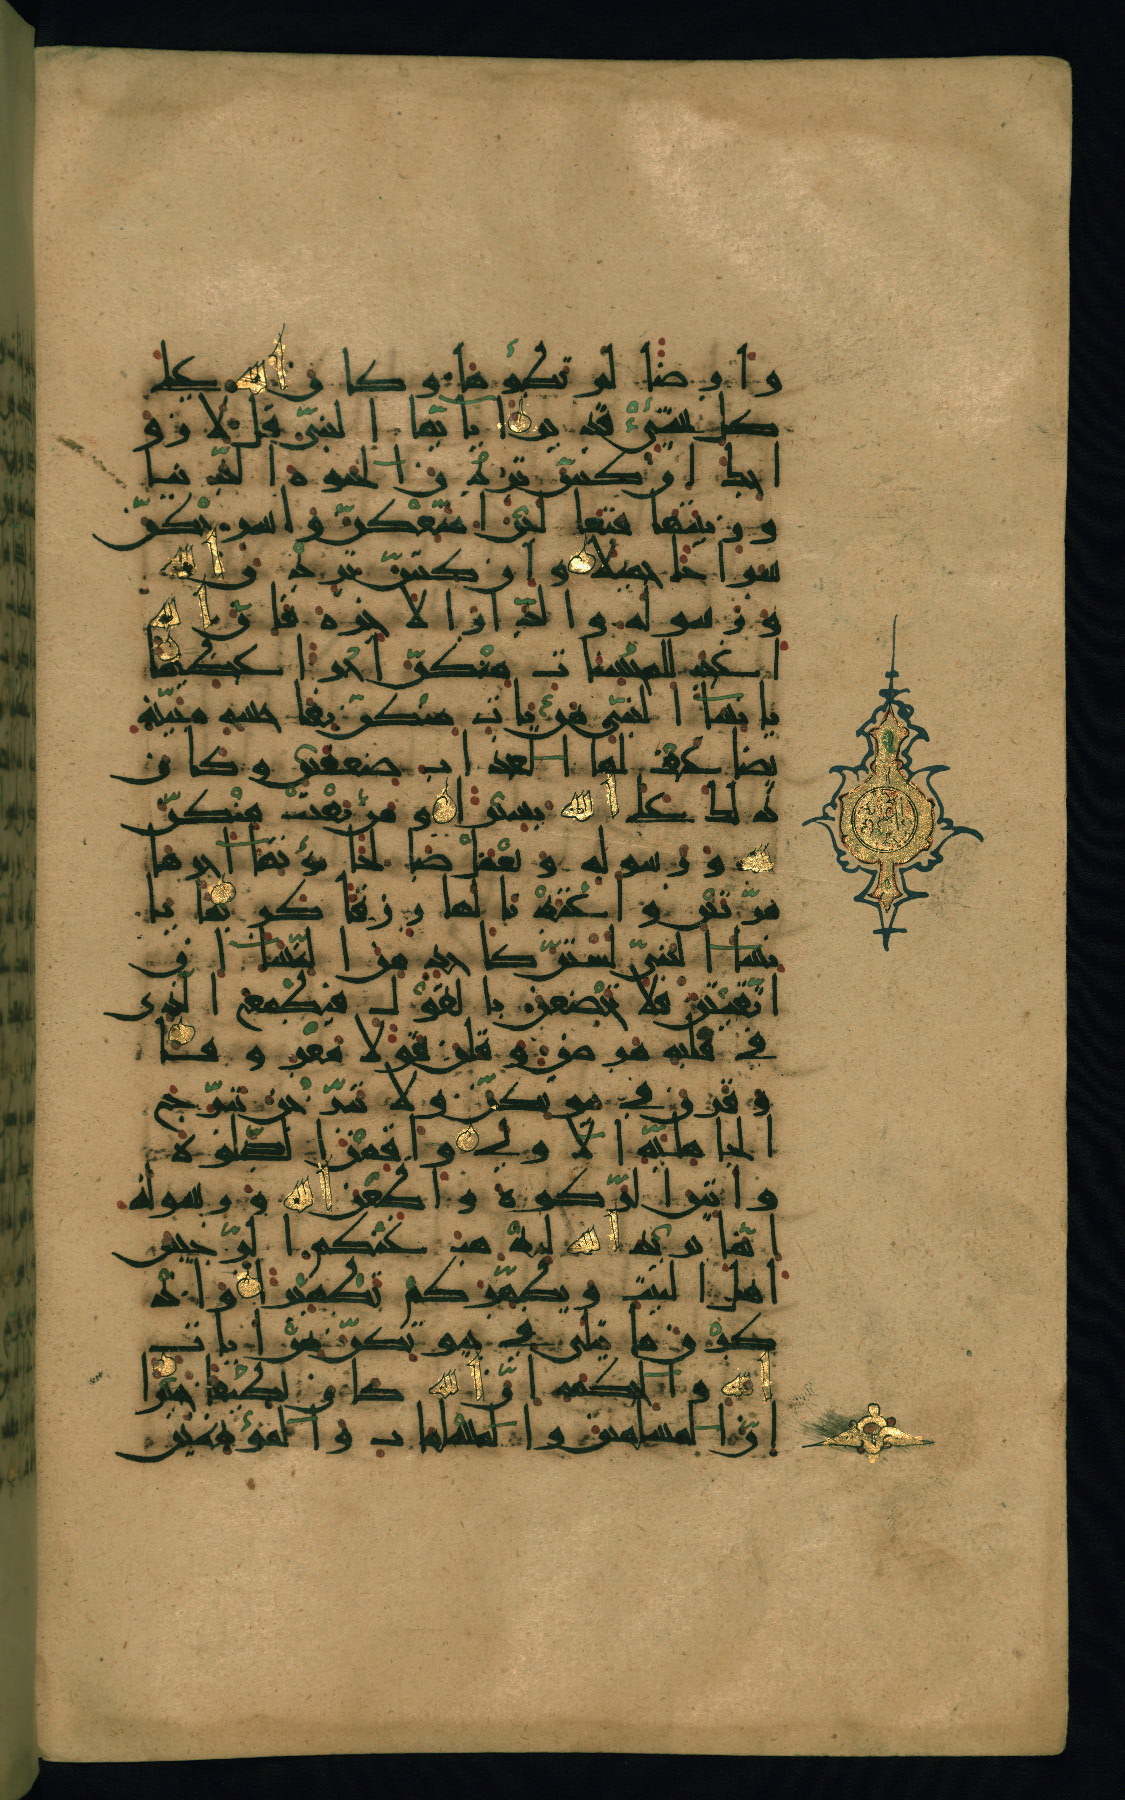 وارضا لم تطؤها وكان الله على
كل شئ قديرا يايها النبى قل لازو
اجك ان كنتن تردن الحيوة الدنيا
وزينتها فتعالين امتعكن واسرحكن
سراحا جميلا وان كنتن تردن الله
ورسوله والدار الاخرة فان الله
اعد للمحسنات منكن اجرا عظيما
يانسا النبى من يات منكن بفاحشة مبينة
يضاعف لها العذاب ضعفين وكان
ذلك على الله يسيرا ومن يقنت منكن
لله ورسوله وتعمل صالحا نؤتها اجرها
مرتين واعتدنا لها رزقا كريما يا
نسا النبى لستن كاحد من النسا ان
اتقيتن فلا تخضعن بالقول فيطمع الذى
فى قلبه مرض وقلن قولا معروفا
وقرن فى بيوتكن ولا تبرجن تبرج
الجاهلية الاولى واقمن الصلوة
واتين الزكوة واطعن الله ورسوله
انما يريد الله ليذهب عنكم الرجس
اهل البيت ويطهركم تطهيرا واذ
كرن ما يتلى فى بيوتكن من ايات
الله والحكمة ان الله كان لطيفا خبيرا
ان المسلمين والمسلمات والمؤمنين